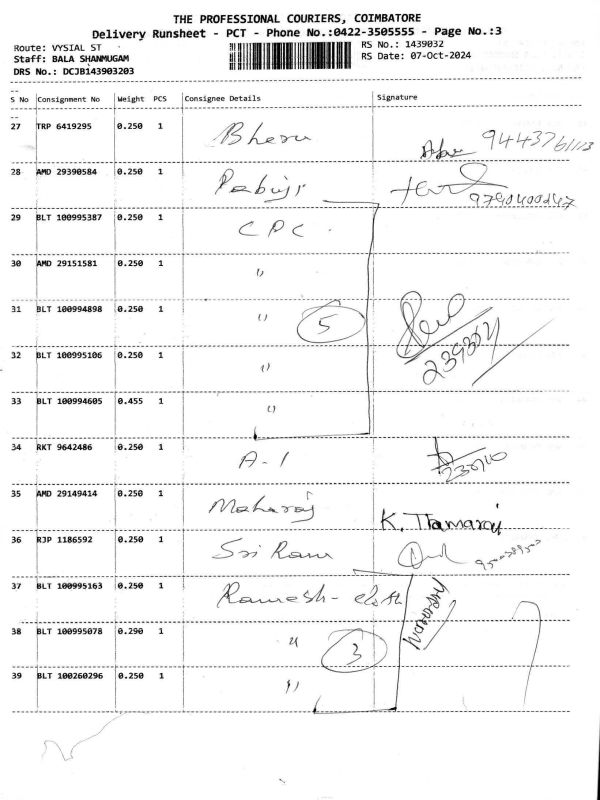 THE PROFESSIONAL COURIERS, COIMBATORE
Delivery Runsheet - PCT - Phone No.:0422-3505555 - Page No.:3
Route: VYSIAL ST
RS No.: 1439032
Staff: BALA SHANMUGAM
RS Date: 07-Oct-2024
DRS No.: DCJB143903203
S No Consignment No Weight PCS Consignee Details Signature
27 TRP 6419295 0.250 1 Bheru
28 AMD 29390584 0.250 1 Pabuji
29 BLT 100995387 0.250 1 CPC
30 AMD 29151581 0.250 1 "
31 BLT 100994898 0.250 1 " 5
32 BLT 100995106 0.250 1 "
33 BLT 100994605 0.455 1 "
34 RKT 9642486 0.250 1 A-1
35 AMD 29149414 0.250 1 Maharaj K. Thamaraj
36 RJP 1186592 0.250 1 Sri Ram
37 BLT 100995163 0.250 1 Ramesh - cloth
38 BLT 100995078 0.290 1 " 3
39 BLT 100260296 0.250 1 "